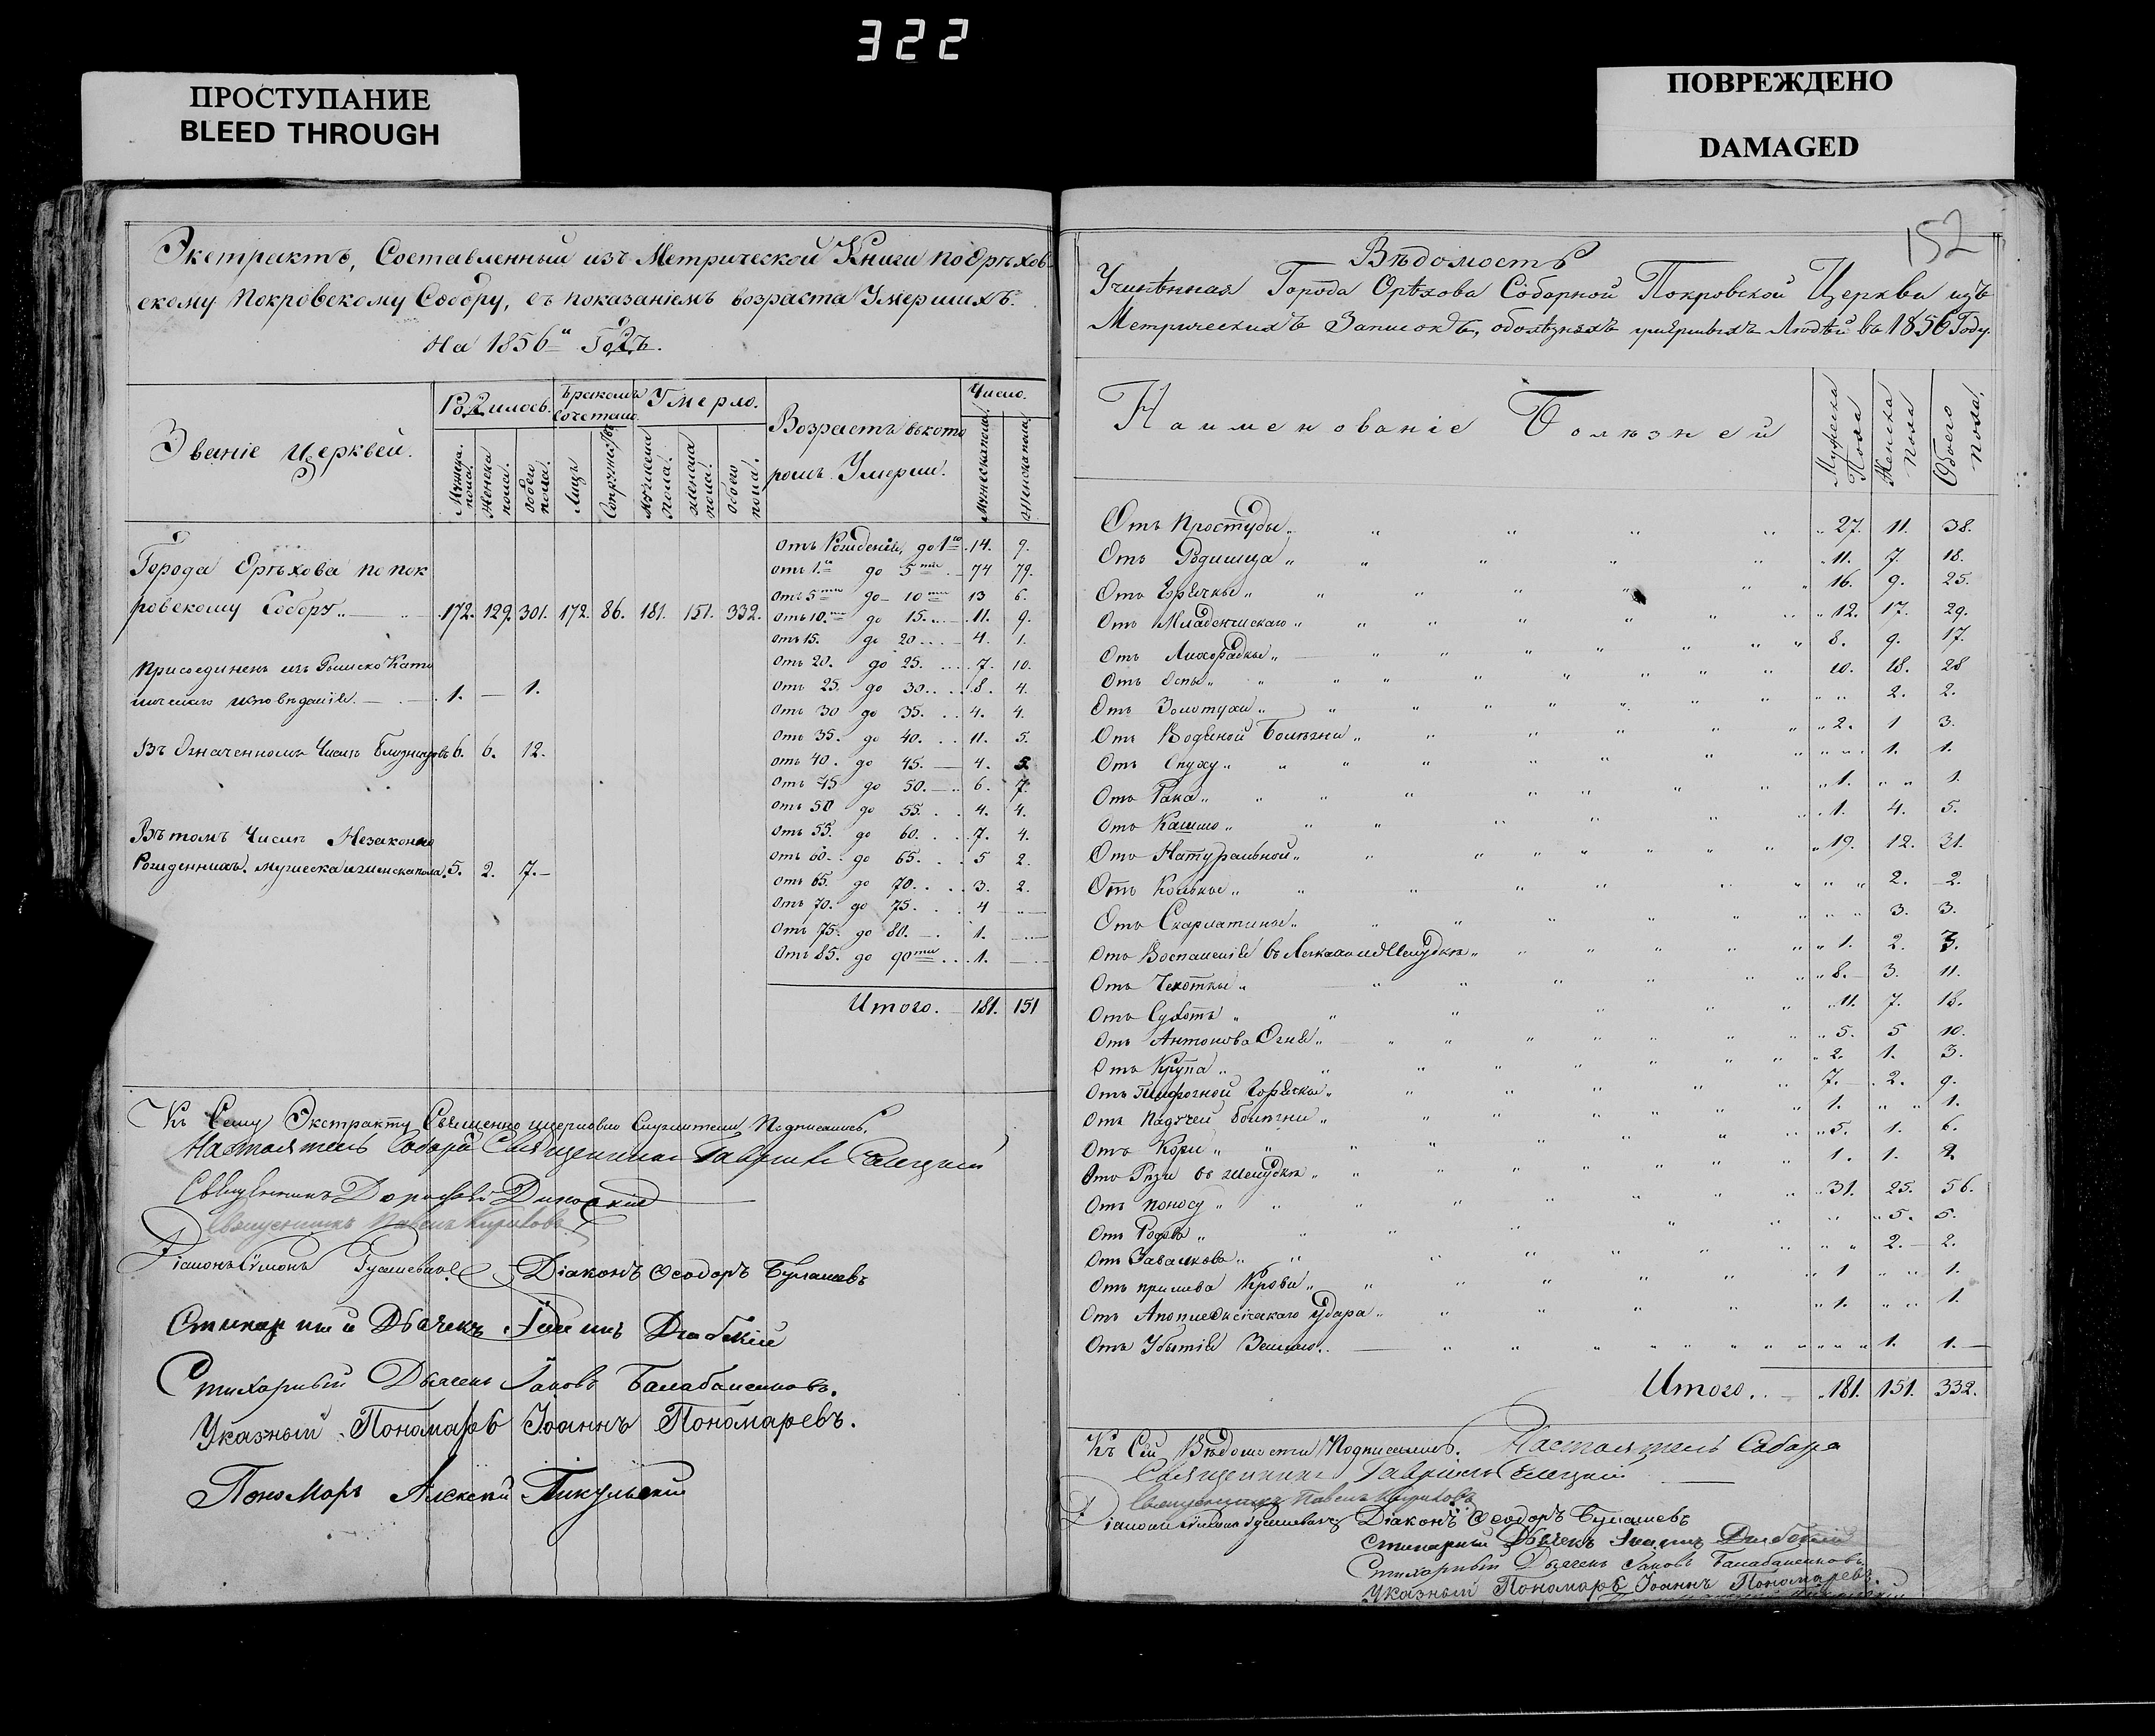 322
ПРОСТУПАНИЕ
BLEED THROUGH
ПОВРЕЖДЕНО
DAMAGED
152
Экстрактъ, Составленный изъ Метрической Книги по Орѣхов-
скому Покровскому Собору, съ показаніемъ возраста Умершихъ.
На 1856й Годъ.
Званіе Церквей.
Родилось.
Бракомъ сочетано
Умерло.
Возрастъ въ кото
ромъ Умерли.
Число.
Мужеска пола.
Женска пола.
Обоего пола.
Лицъ
Супружествъ
Мужеска пола.
Женска пола.
Обоего пола.
Мужеска пола.
Женска пола.
Города Орѣхова по Пок
ровскому Собору 172. 129. 301. 172. 86. 181. 151. 332.
Присоединенъ изъ Римско Като
лическаго исповѣданія. 1. — 1.
Въ Означенномъ Числѣ Близнецовъ 6. 6. 12.
Въ томъ Числѣ Незаконно
Рожденныхъ. мужеска и женска пола. 5. 2. 7.
Отъ Рожденія, до 1го 14. 9.
отъ 1го до 5ти 74 79.
Отъ 5ти до 10ти 13 6.
Отъ 10ти до 15. 11. 9.
Отъ 15. до 20 4. 1.
Отъ 20. до 25. 7. 10.
Отъ 25. до 30. 8. 4.
Отъ 30 до 35. 4. 4.
Отъ 35. до 40. 11. 5.
Отъ 40. до 45. 4. 5.
Отъ 45 до 50. 6. 7.
Отъ 50 до 55. 4. 4.
Отъ 55. до 60. 7. 4.
Отъ 60. до 65. 5 2.
Отъ 65. до 70. 3. 2.
Отъ 70. до 75. 4 —
Отъ 75. до 80. 1. —
Отъ 85. до 90ти 1. —
Итого. 181. 151
Къ Сему Экстракту Священно церковно служители Подписались.
Настоятель Собора Священникъ Гавріилъ
Священникъ
Священникъ Павелъ Кириловъ
Діаконъ Симонъ
Діаконъ Ѳеодоръ Булашевъ
Стихарный Дьячекъ
Стихарный Дьячекъ Іаковъ Балабаненковъ.
Указный Пономарь Іоаннъ Пономаревъ.
Пономарь Алексѣй Пикульскій
Вѣдомость
Учиненная Города Орѣхова Соборной Покровской Церкви изъ
Метрическихъ Записокъ, о болѣзняхъ умершихъ Людей въ 1856 Году.
Наименованіе Болѣзней
Мужеска Пола
Женска Пола
Обоего Пола.
Отъ Простуды 27. 11. 38.
Отъ Родимца 11. 7. 18.
Отъ Горячки 16. 9. 25.
Отъ Младенческаго 12. 17. 29.
Отъ Лихорадки 8. 9. 17.
Отъ Оспы 10. 18. 28
Отъ Золотухи 2. 2.
Отъ Водяной Болѣзни 2. 1 3.
Отъ Опуху 1. 1.
Отъ Рака 1. 1.
Отъ Кашлю 1. 4. 5.
Отъ Натуральной 19. 12. 31.
Отъ Колики 2. 2.
Отъ Скарлатины 3. 3.
Отъ Воспаленія въ Легкахъ и Желудкѣ 1. 2. 3.
Отъ Чехотки 8. 3. 11.
Отъ Сухотъ 11. 7. 18.
Отъ Антонова Огня 5. 5 10.
Отъ Крупа 2. 1. 3.
Отъ Тифозной Горячки 7. 2. 9.
Отъ Падучей Болѣзни 1. 1.
Отъ Кори 5. 1. 6.
Отъ Рези въ желудкѣ 1. 1. 2
Отъ Поносу 31. 25. 56.
Отъ Родовъ 5. 5.
Отъ Завалковъ 2. 2.
Отъ прилива Крови 1 1.
Отъ Апоплексическаго Удара 1. 1.
Отъ Убытія Землею 1. 1.
Итого 181. 151. 332.
Къ Сей Вѣдомости Подписались. Настоятель Собора
Священникъ Гавріилъ
Священникъ Павелъ Кириловъ
Діаконъ Симонъ
Діаконъ Ѳеодоръ Булашевъ
Стихарный Дьячекъ
Стихарный Дьячекъ Іаковъ Балабаненковъ
Указный Пономарь Іоаннъ Пономаревъ.